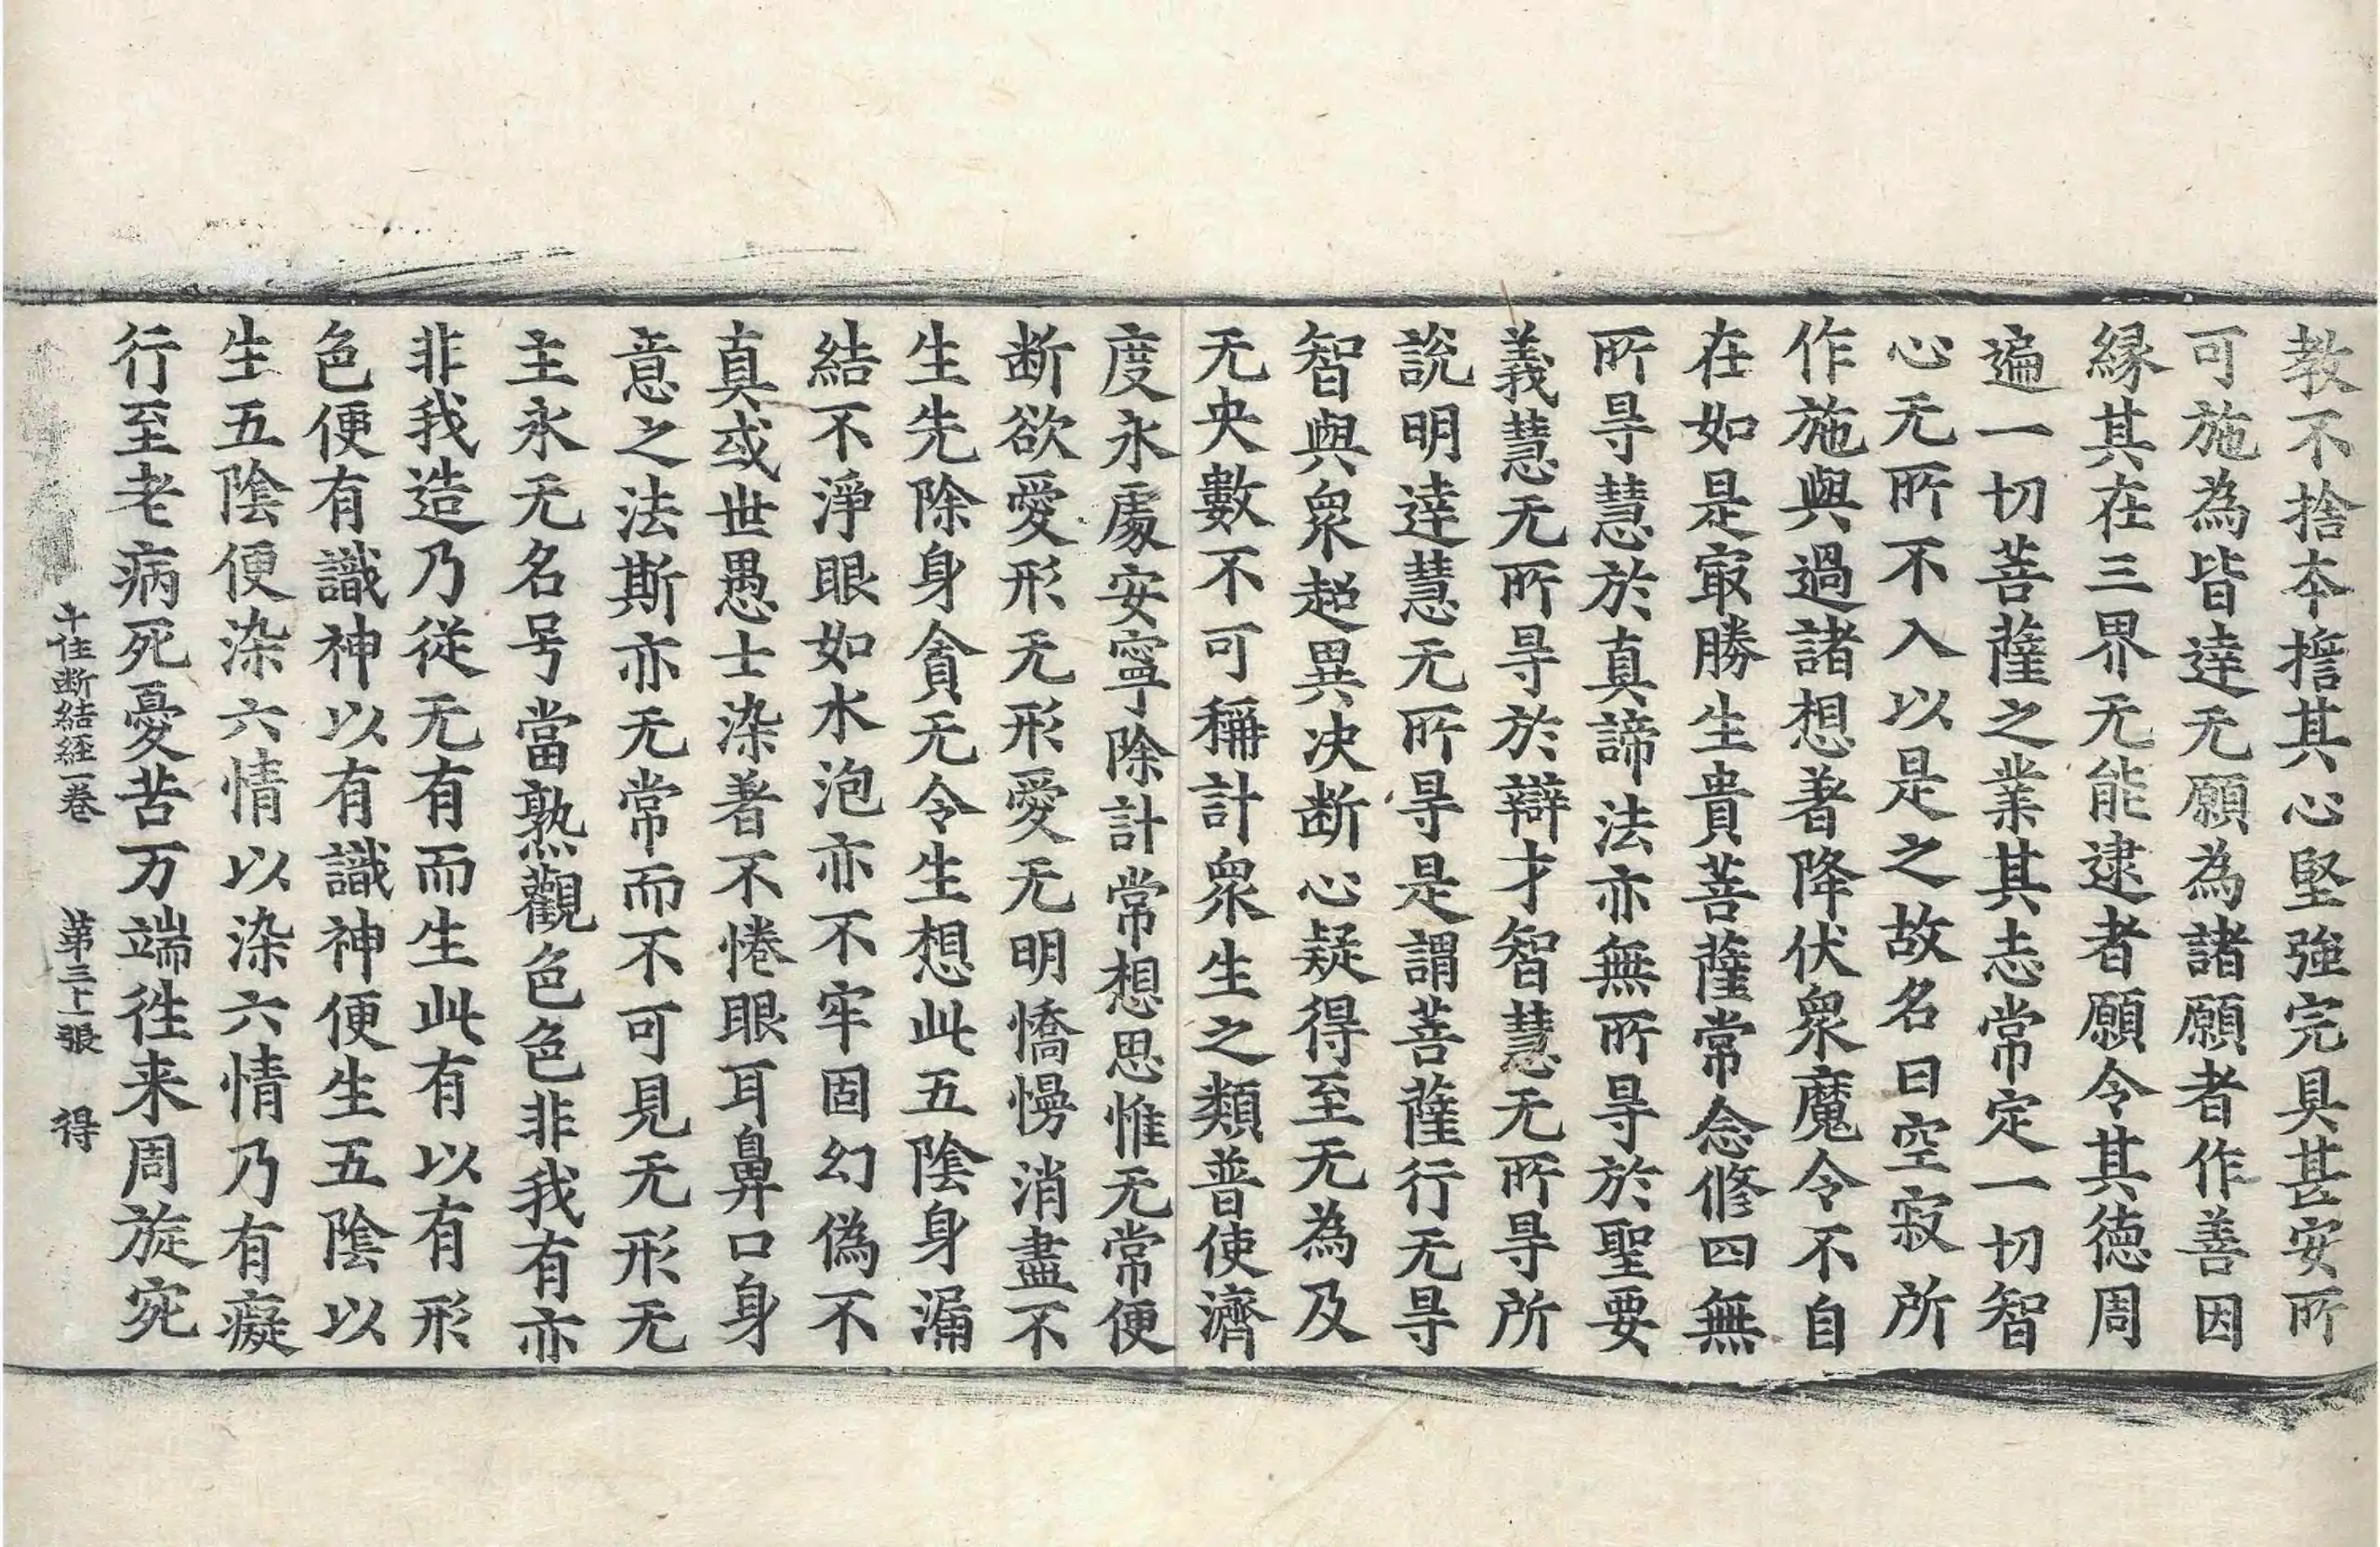 教不捨本擔其心堅強完具甚安所
可施為皆達无願為諸願者作善因
緣其在三界无能逮者願令其德周
遍一切菩薩之業其志常定一切智
心无所不入以是之故名曰空寂所
作施與過諸想著降伏衆魔令不自
在如是㝡勝生貴菩薩常念修四無
所㝵慧於真諦法亦無所㝵於聖要
義慧无所㝵於辯才智慧无所㝵所
說明達慧无所㝵是謂菩薩行无㝵
智與衆超異决断心疑得至无為及
无央數不可稱計衆生之類普使濟
度永處安寧除計常想思惟无常便
断欲愛形无形愛无明憍慢消盡不
生先除身貪无令生想此五陰身漏
結不淨眼如水泡亦不牢固幻偽不
真或世愚士染著不惓眼耳鼻口身
意之法斯亦无常而不可見无形无
主永无名号當熟觀色色非我有亦
非我造乃従无有而生此有以有形
色便有識神以有識神便生五陰以
生五陰便染六情以染六情乃有癡
行至老病死憂苦万端徃来周旋宛
十住断結経一卷 第三十一張 得